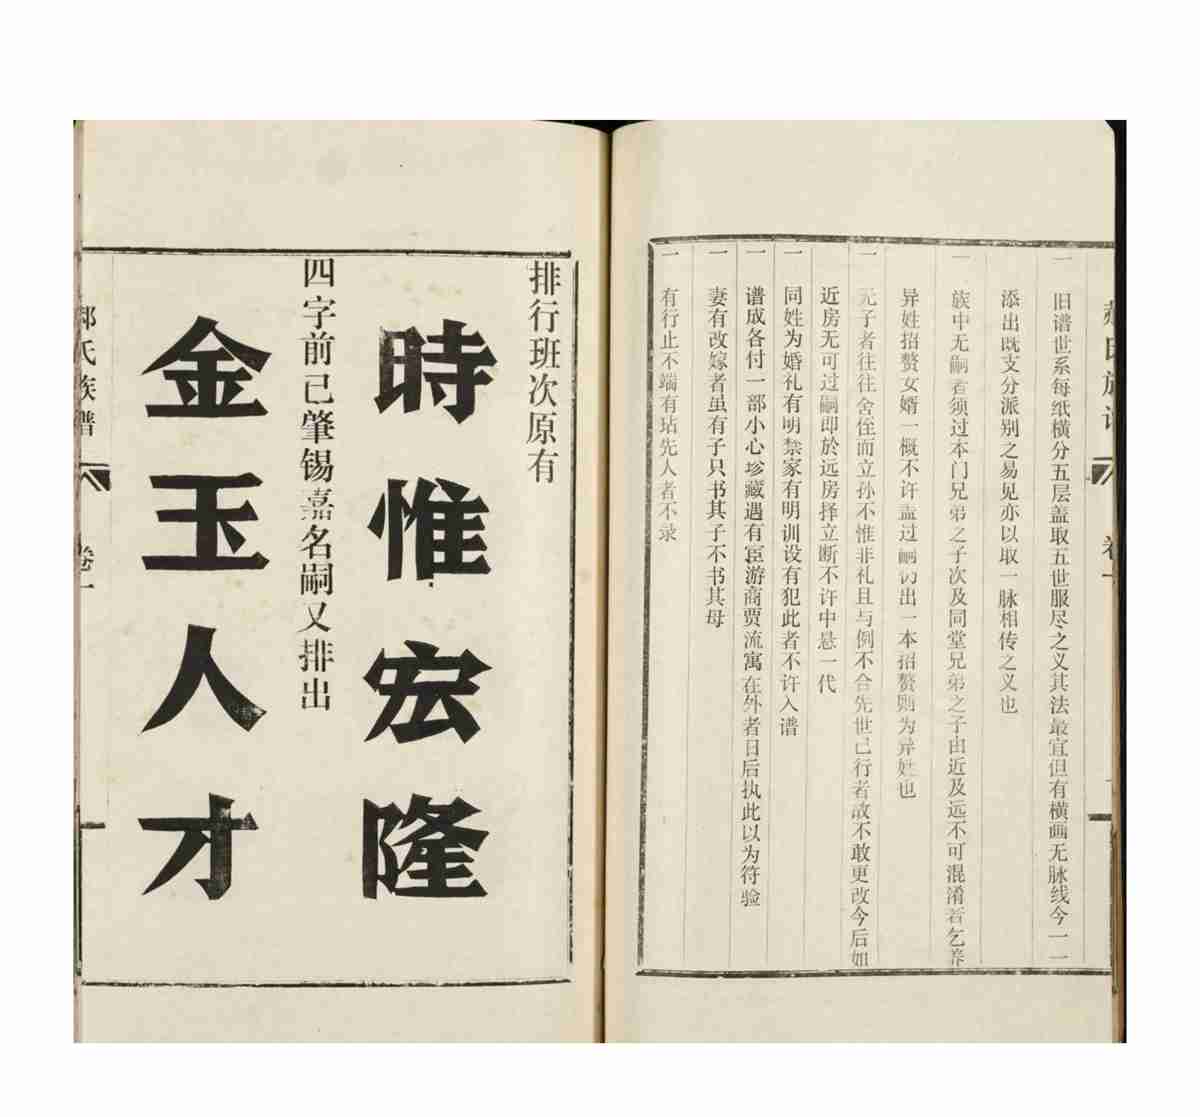 一 旧谱世系每纸横分五层盖取五世服尽之义其法最宜但有横画无脉线今一一
添出既支分派别之易见亦以取一脉相传之义也
一 族中无嗣者须过本门兄弟之子次及同堂兄弟之子由近及远不可混淆若乞养
异姓招赘女婿一概不许盖过嗣仍出一本招赘则为异姓也
一 无子者往往舍侄而立孙不惟非礼且与例不合先世已行者故不敢更改今后如
近房无可过嗣即於远房择立断不许中悬一代
一 同姓为婚礼有明禁家有明训设有犯此者不许入谱
一 谱成各付一部小心珍藏遇有宦游商贾流寓在外者日后执此以为符验
一 妻有改嫁者虽有子只书其子不书其母
一 有行止不端有玷先人者不录
排行班次原有
時惟宏隆
四字前已肇锡嘉名嗣又排出
金玉人才
氏族谱
卷一